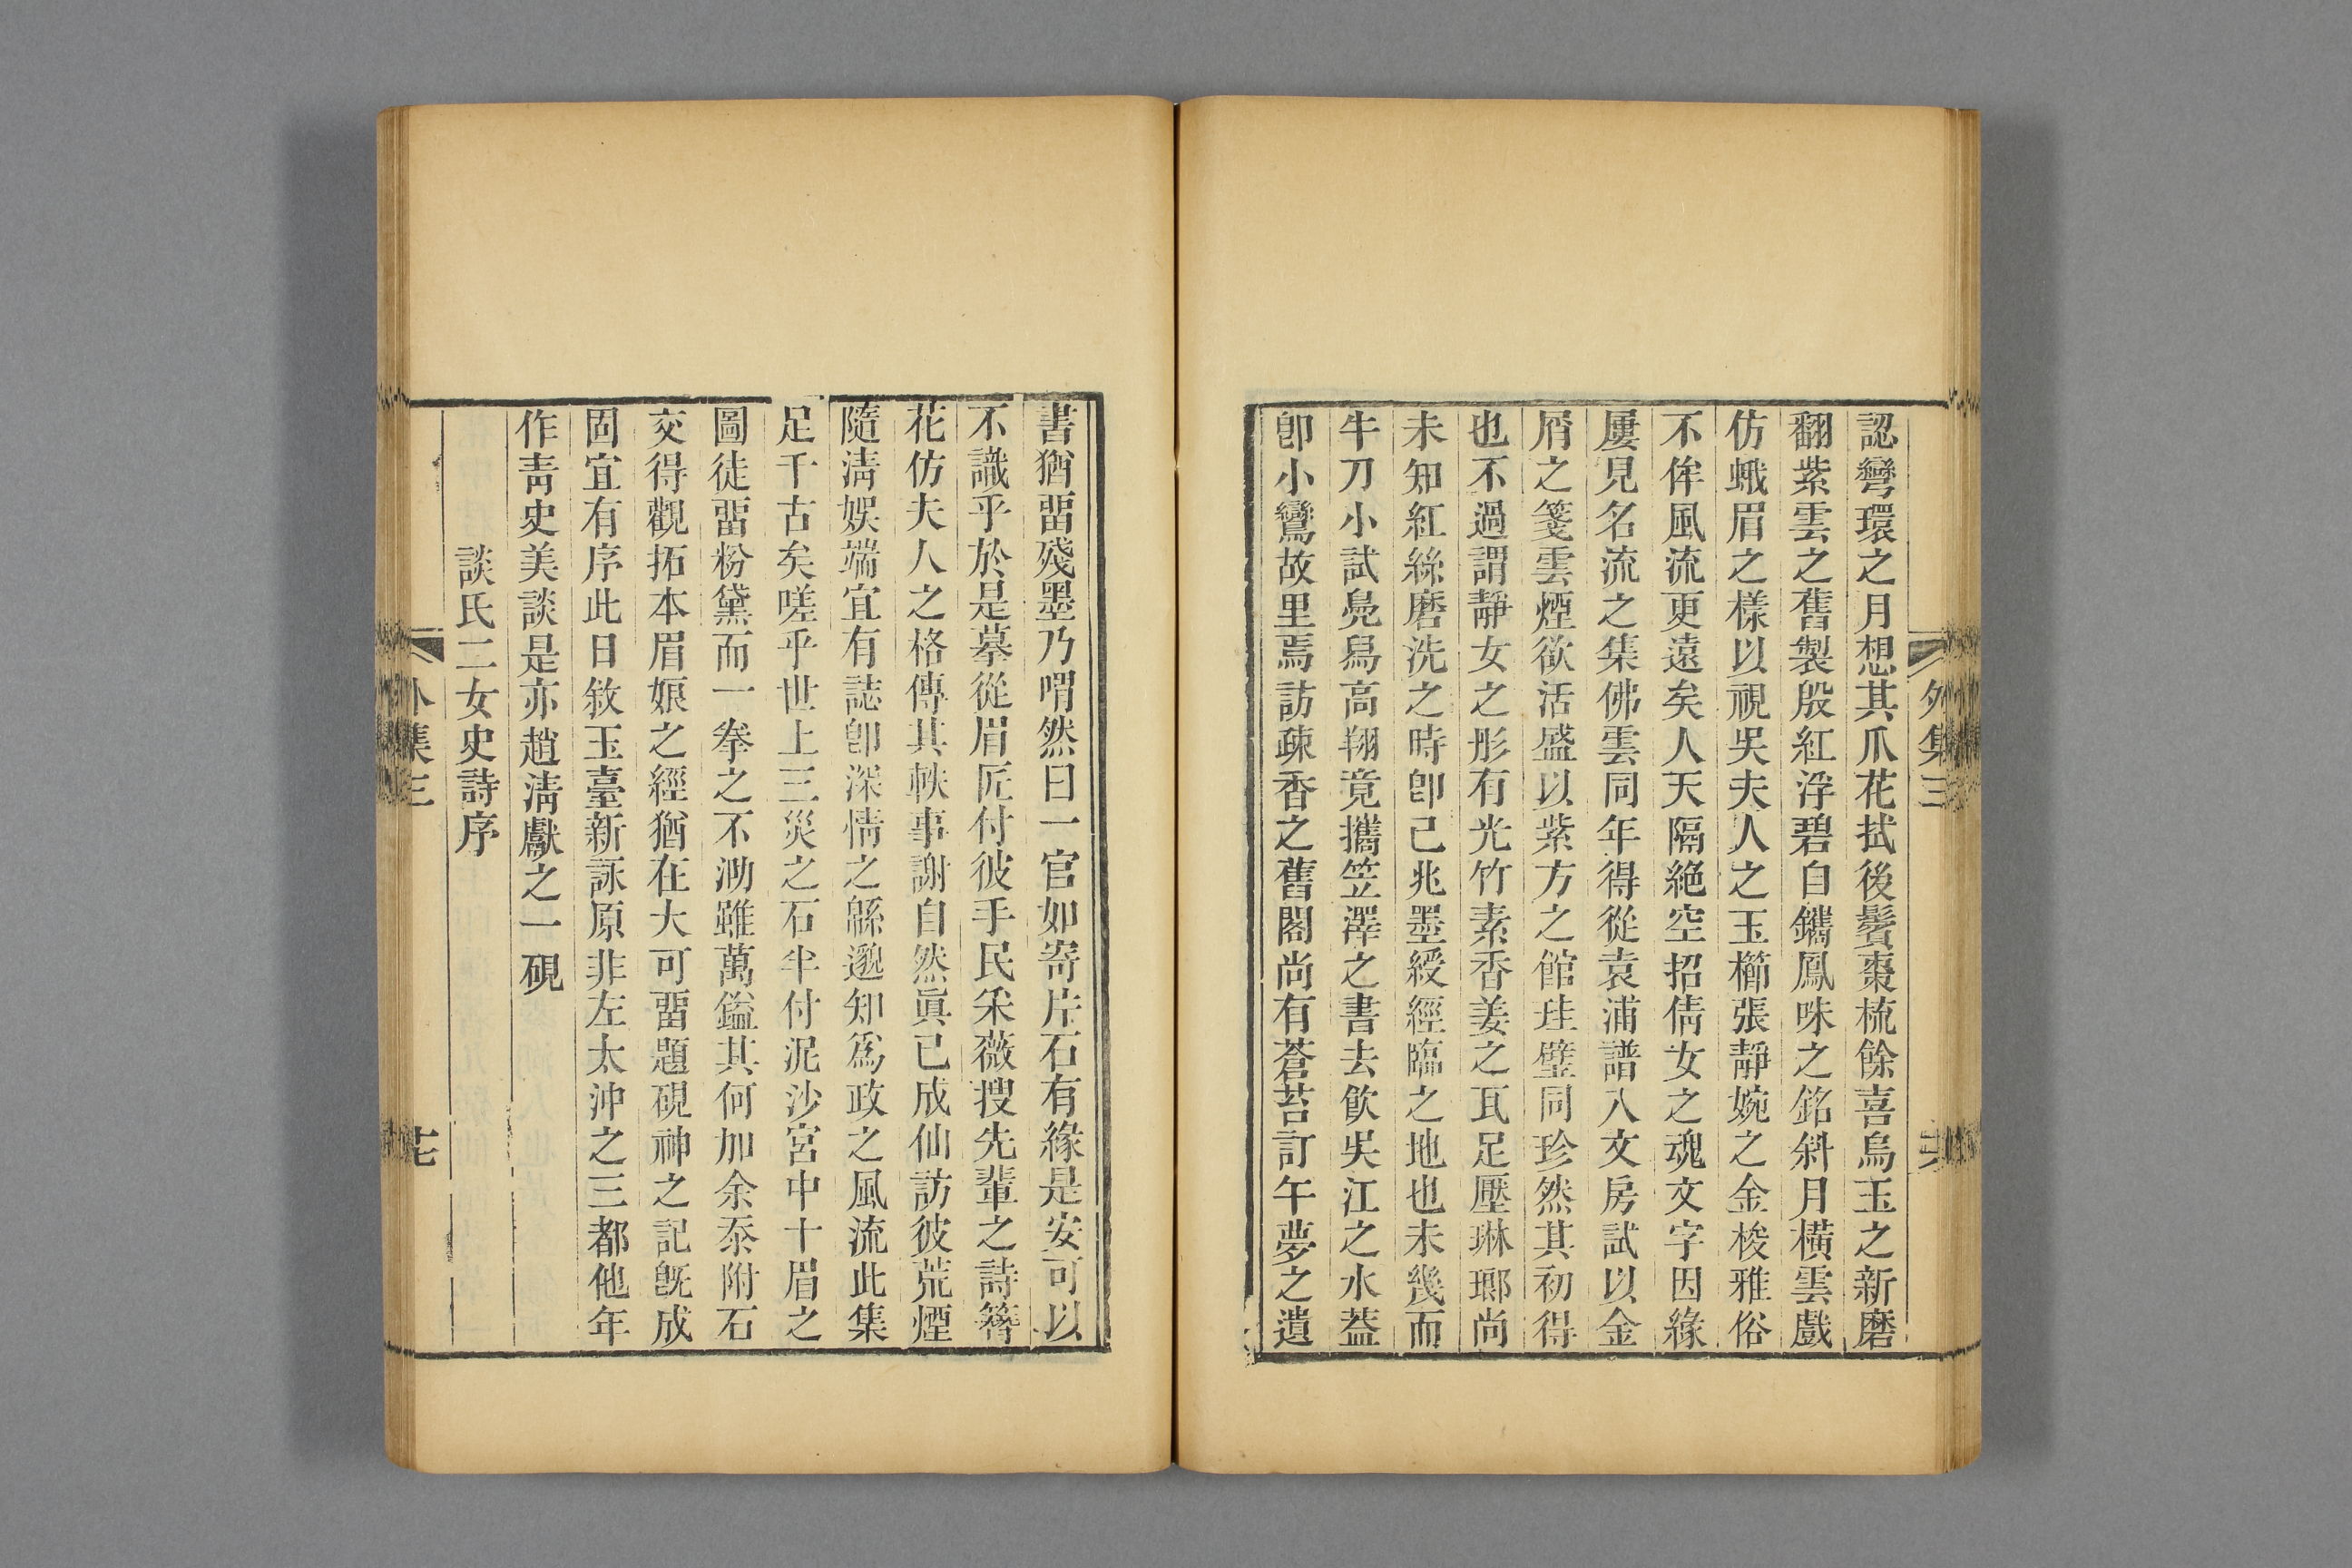 認彎環之月想其爪花拭後鬢棗梳餘喜烏玉之新磨
翻紫雲之舊製殷紅浮碧自鐫鳳咮之銘斜月橫雲戲
仿蛾眉之樣以視吳夫人之玉櫛張靜婉之金梭雅俗
不侔風流更遠矣人天隔絶空招倩女之魂文字因緣
屢見名流之集佛雲同年得從袁浦譜入文房試以金
屑之箋雲煙欲活盛以紫方之館珪璧同珍然其初得
也不過謂靜女之彤有光竹素香姜之瓦足壓琳瑯尚
未知紅絲磨洗之時卽已兆墨綬經臨之地也未幾而
牛刀小試鳧舄高翔竟攜笠澤之書去飮吳江之水葢
卽小鸞故里焉訪疎香之舊閣尚有蒼苔訂午夢之遺
外集三
書猶畱殘墨乃喟然曰一官如寄片石有緣是安可以
不識乎於是摹從眉匠付彼手民采薇搜先輩之詩簪
花仿夫人之格傳其軼事謝自然眞已成仙訪彼荒煙
隨淸娛端宜有誌卽深情之緜邈知爲政之風流此集
足千古矣嗟乎世上三災之石半付泥沙宮中十眉之
圖徒畱粉黛而一拳之不泐雖萬鎰其何加余忝附石
交得觀拓本眉娘之經猶在大可畱題硯神之記旣成
固宜有序此日敘玉臺新詠原非左太沖之三都他年
作靑史美談是亦趙淸獻之一硯
談氏二女史詩序
外集三